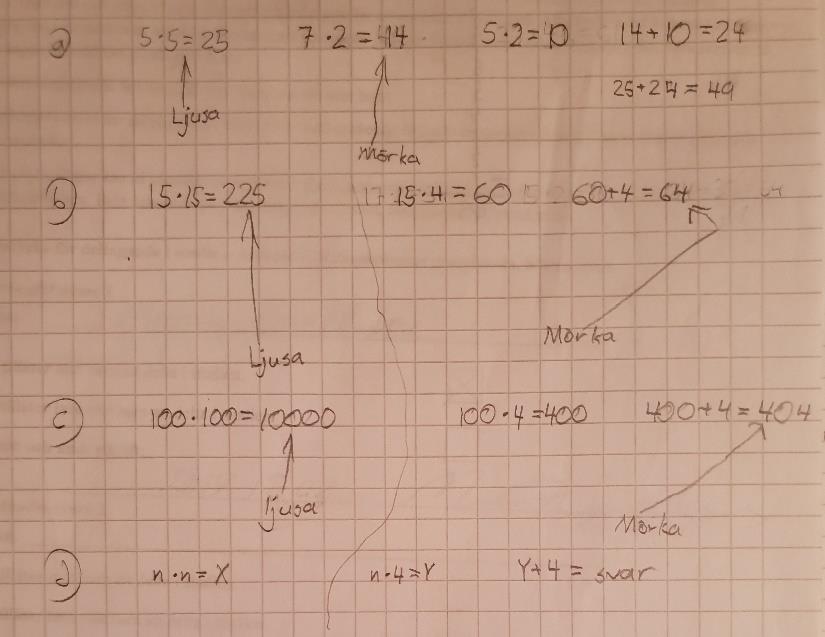 a) 5·5=25 7·2=14 5·2=10 14+10=24
25+24=49
Ljusa
Mörka
b) 15·15=225 15·4=60 60+4=64
Mörka
Ljusa
c) 100·100=10000 100·4=400 400+4=404
ljusa
Mörka
d) n·n=X n·4=Y Y+4=svar